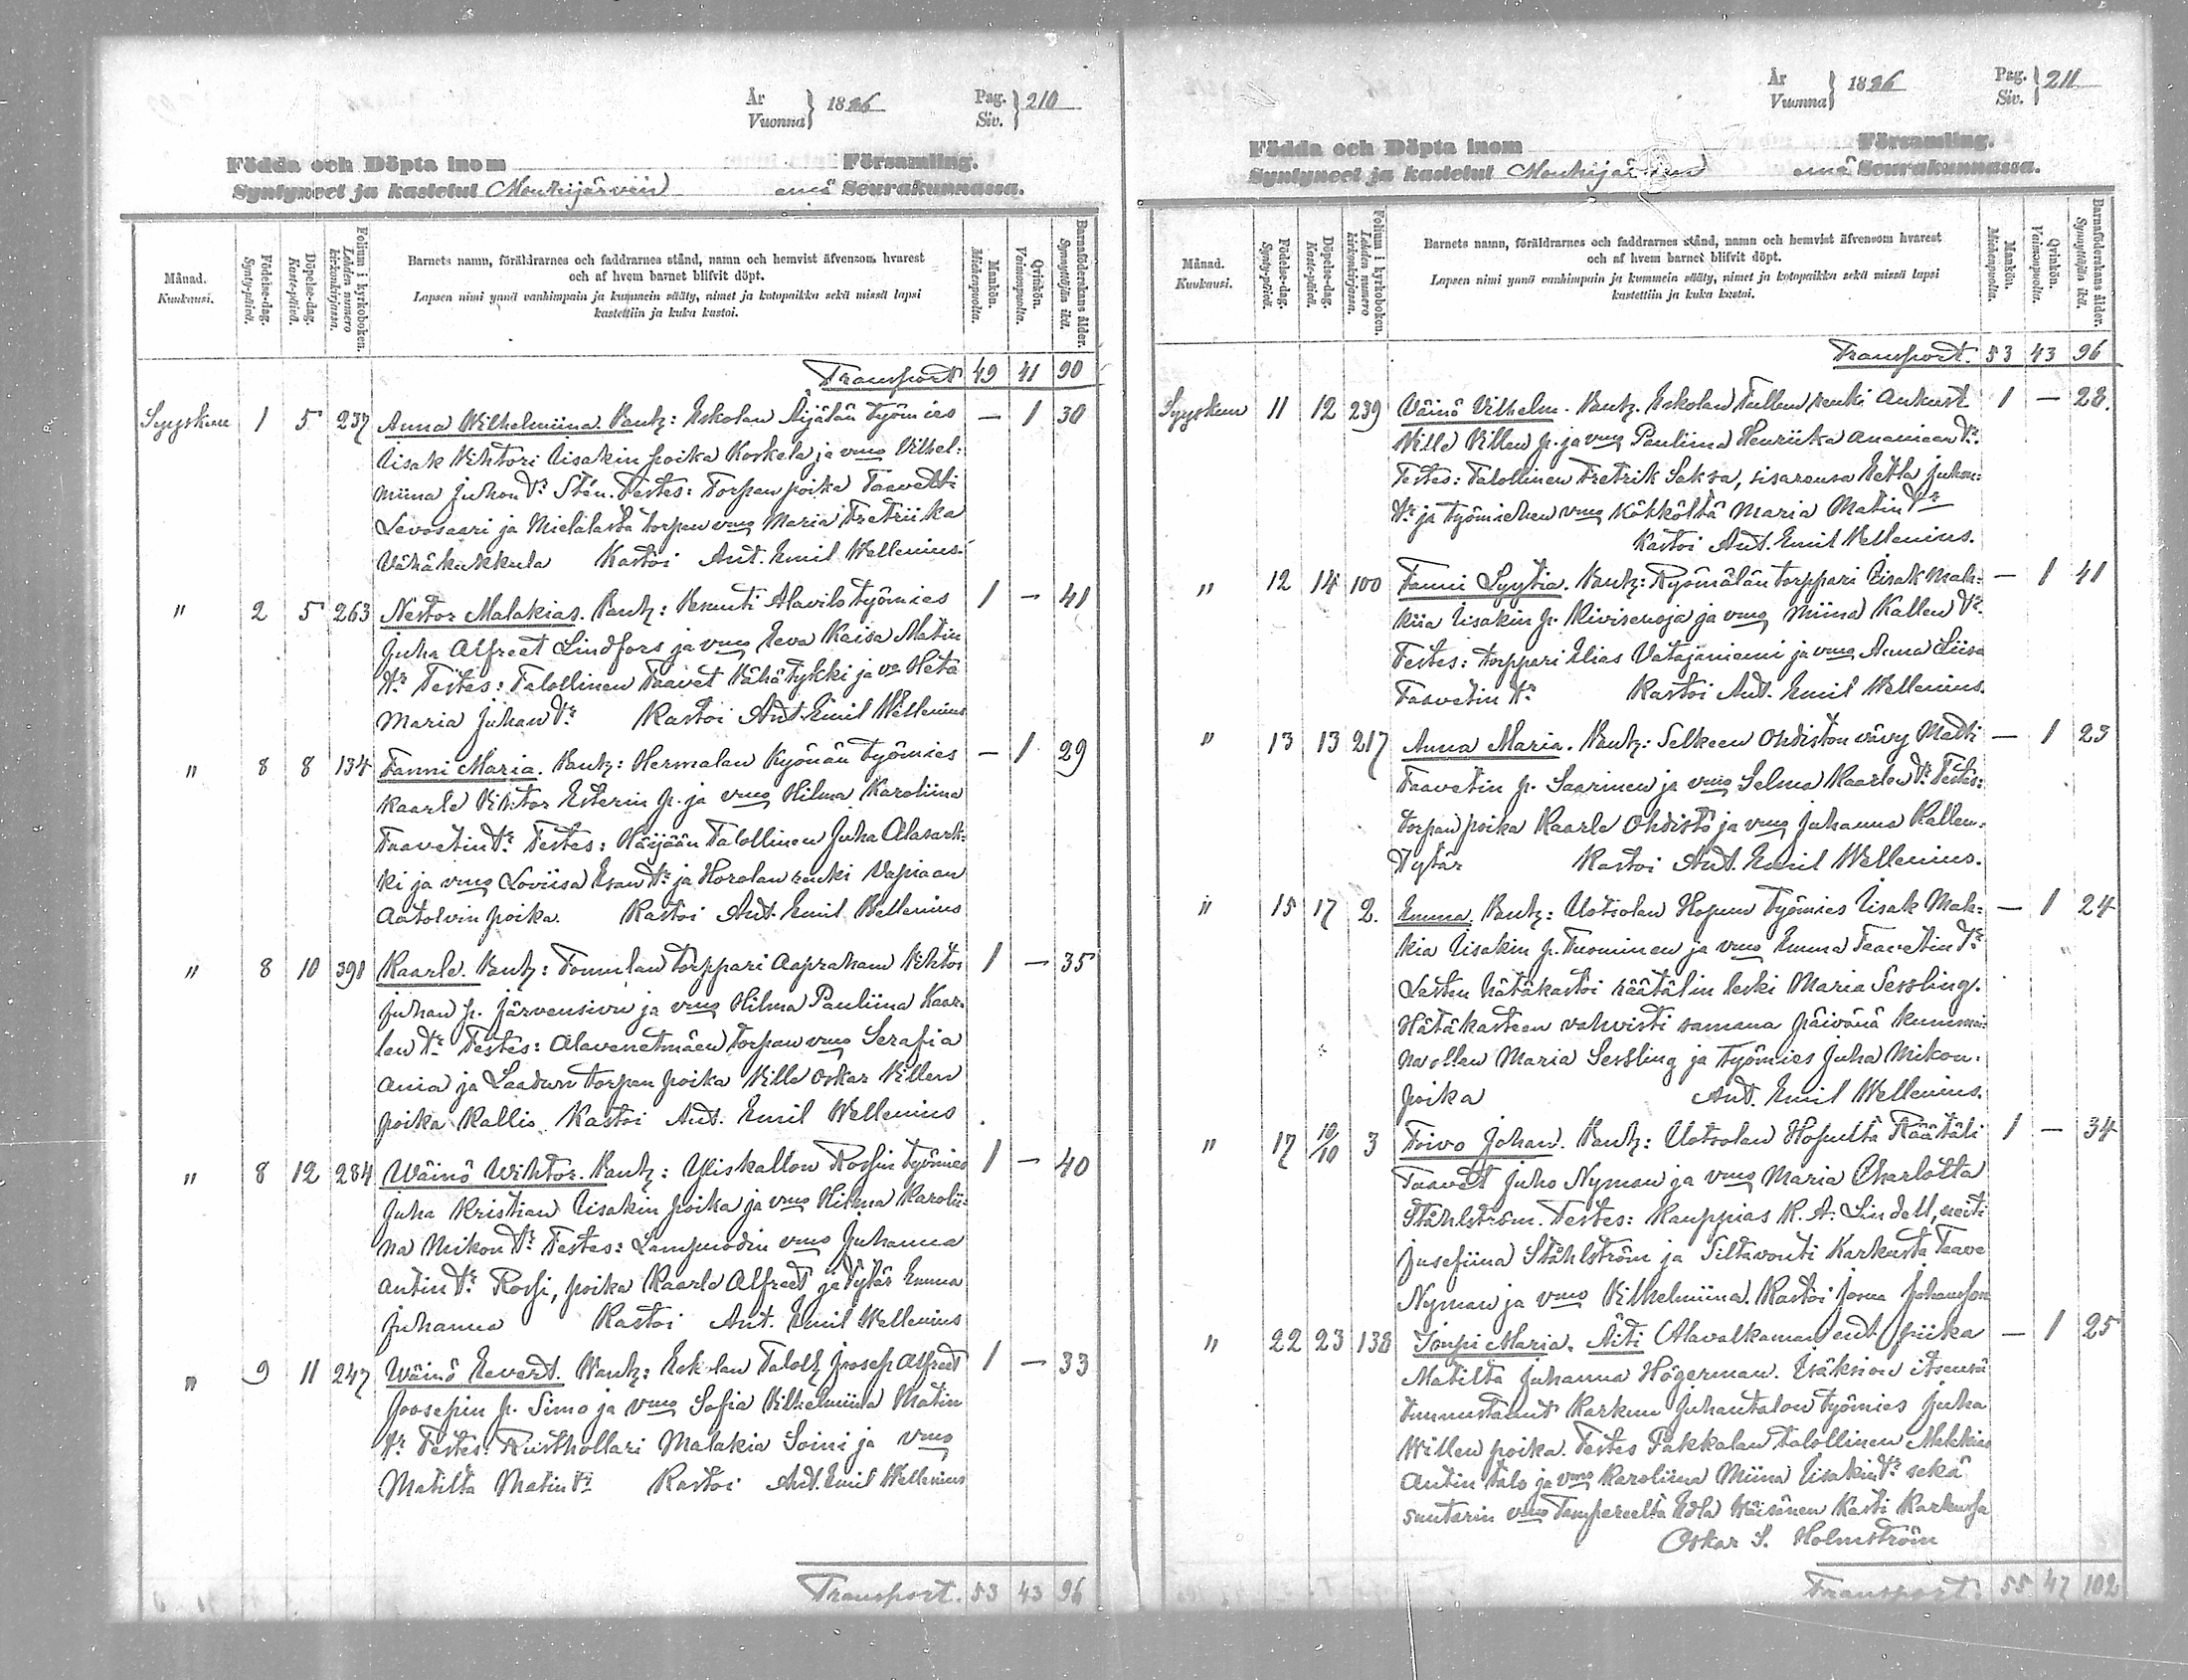 År
Vuonna } 1896
Pag.
Siv. } 210
Födda och Döpta inom Församling.
Syntyneet ja kastetut Mouhijärven emä Seurakunnassa.
Månad.
Kuukausi.
Födelse-dag.
Synty-päivä.
Döpelse-dag.
Kaste-päivä.
Folium i kyrkoboken.
Lehden numero kirkonkirjassa.
Barnets namn, föräldrarnes och faddrarnes stånd, namn och hemvist äfvensom hvarest
och af hvem barnet blifvit döpt.
Lapsen nimi ynnä vanhimpain ja kummein sääty, nimet ja kotopaikka sekä missä lapsi
kastettiin ja kuka kastoi.
Mankön.
Miehenpuolta.
Qvinkön.
Vaimonpuolta.
Barnaföderskans ålder.
Synnyttäjän ikä.
Transport 49 41 90
Syyskuu 1 5 237 Anna Wilhelmiina. Vanh: Eskolan Äijälän työmies — 1 30
Iisak Vihtori Iisakin poika Koskela ja vmo Vilhel:
miina Juhon tr Stén. Testes: Torpan poika Taavetti
Levosaari ja Mielalasta torpan vmo Maria Fretriika
Vähäkukkula Kastoi Ant. Emil Wellenius.
" 2 5 263 Nestor Malakias. Vanh: Alavilo työmies 1 — 41
Juha Alfreet Lindfors ja vmo Eeva Kaisa Matin
tr Testes: Talollinen Taavet Vähätykki ja vo Heta
Maria Juhan tr Kastoi Ant. Emil Wellenius
" 8 8 134 Fanni Maria. Vanh: Hermalan Kyönän työmies — 1 29
Kaarle Vihtor Esterin p. ja vmo Hilma Karoliina
Taavetin tr Testes: Häijään Talollinen Juha Alasark:
ki ja vmo Loviisa Esan tr ja Horolan renki Vapiaan
Aatolvin poika. Kastoi Ant. Emil Wellenius
" 8 10 391 Kaarle. Vanh: Tomulan torppari Aapraham Vihtor 1 — 35
Juhan p. Järvensivu ja vmo Hilma Pauliina Kaar:
len tr Testes: Alavenetmäen torpan vmo Serafia
Ania ja Laadun torpan poika Ville Oskar Villen
poika Kallio Kastoi Ant. Emil Wellenius
" 8 12 284 Wäinö Wihtor. Vanh: Yliskallon Rossin työmies 1 — 40
Juha Kristian Iisakin poika ja vmo Hilma Karolii:
na Mikon tr Testes: Lampuodin vmo Juhanna
Antin tr Rossi, poika Kaarle Alfreet ja tytär Emma
Juhanna Kastoi Ant. Emil Wellenius
" 9 11 247 Wäinö Eevert. Vanh: Eskolan Taloll. Joosep Alfreet 1 — 33
Joosepin p. Simo ja vmo Sofia Vilhelmiina Matin
tr Testes: Rusthollari Malakia Soini ja vmo
Matilta Matin tr Kastoi Ant. Emil Wellenius
Transport. 53 43 96
År
Vuonna } 1896
Pag.
Siv. } 211
Födda och Döpta inom Församling.
Syntyneet ja kastetut Mouhijärven emä Seurakunnassa.
Månad.
Kuukausi.
Födelse-dag.
Synty-päivä.
Döpelse-dag.
Kaste-päivä.
Folium i kyrkoboken.
Lehden numero kirkonkirjassa.
Barnets namn, föräldrarnes och faddrarnes stånd, namn och hemvist äfvensom hvarest
och af hvem barnet blifvit döpt.
Lapsen nimi ynnä vanhimpain ja kummein sääty, nimet ja kotopaikka sekä missä lapsi
kastettiin ja kuka kastoi.
Mankön.
Miehenpuolta.
Qvinkön.
Vaimonpuolta.
Barnaföderskans ålder.
Synnyttäjän ikä.
Transport. 53 43 96
Syyskuu 11 12 239 Väinö Vilhelm. Vanh. Eskolan Tullun renki Aukust 1 — 28.
Ville Villen p. ja vmo Pauliina Henriika Ananiaan tr.
Testes: Talollinen Fretrik Saksa, sisarensa Eetla Juhon:
tr ja työmiehen vmo Kähköltä Maria Matin tr
Kastoi Ant. Emil Vellenius.
" 12 14 100 Fanni Lyytia. Vanh: Ryömälän torppari Iisak Mala: — 1 41
kiia Iisakin p. Kivisenoja ja vmo Miina Kallen tr.
Testes: torppari Elias Vatajaniemi ja vmo Anna Liisa
Taavetin tr Kastoi Ant. Emil Wellenius.
" 13 13 217 Anna Maria. Vanh: Selkeen Ohdiston vävy Matti — 1 23
Taavetin p. Saarinen ja vmo Selma Kaarlen tr. Testes:
torpan poika Kaarle Ohdistö ja vmo Juhanna Kallen.
tytär Kastoi Ant. Emil Wellenius.
" 15 17 2. Emma. Vanh: Uotsolan Hopun työmies Iisak Mala: — 1 24
kia Iisakin p. Tuominen ja vmo Emma Taavetin tr
Lasten hätäkastoi räätälin leski Maria Sessling.
Hätäkasteen vahvisti samana päivänä kummi:
na ollen Maria Sessling ja työmies Juha Mikon.
poika Ant. Emil Wellenius.
" 17 10/10 3 Toivo Johan. Vanh: Uotsolan Hopulta Räätäli 1 — 34
Taavet Juho Nyman ja vmo Maria Charlotta
Ståhlström. Testes: Kauppias K. A. Lindell, neiti
Jusefiina Ståhlström ja Siltavouti Karkusta Taave
Nyman ja vmo Vilhelmiina. Kastoi Josua Johansson
" 22 23 138 Impi Maria. Äiti (Alavalkaman ent. piika — 1 25
Matilta Juhanna Högerman. Isäksion itsensä
tunnustanut Karkun Juhantalon työmies Juha
Willen poika. Testes Pakkalan talollinen Malakias
Antin talo ja vmo Karoliina Miina Iisakin tr sekä
suutarin vmo Tampereelta Edla Wäisänen Kasti Karkussa
Oskar S. Holmström
Transport. 55 47 102